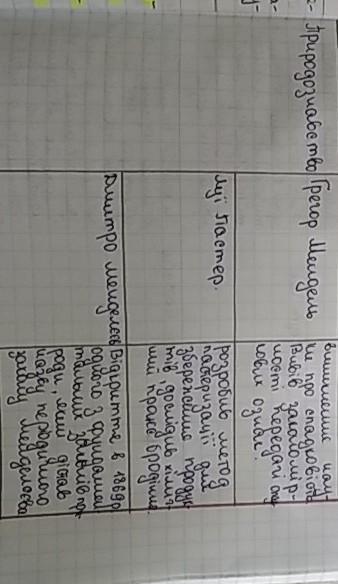 Природознавство
Грегор Мендель
Виникнення нау-
ки про спадковість
Вивів закономір-
ності передачі
нових ознак.
Луї Пастер.
розробив метод
пастеризації для
збереження продук
тів, дослідив хіміч
ний процес бродіння.
Дмитро Менделєєв
Відкриття в 1869р
одного з фундамен
тальних законів при
роди, який дістав
назву періодичного
закону Менделєєва